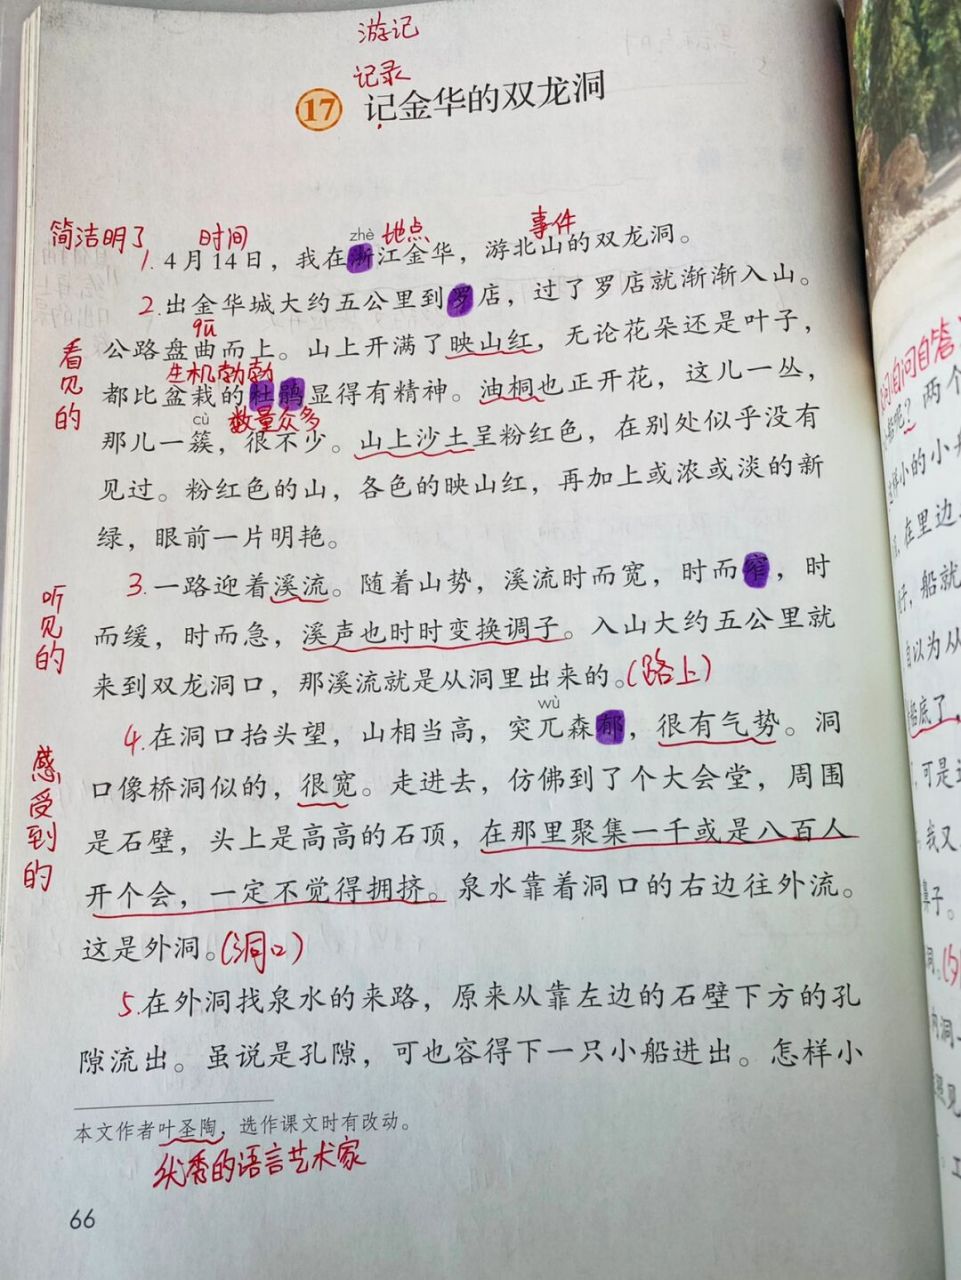 游记
记录
17 记金华的双龙洞
简洁明了 时间 zhè 地点 事件
1. 4月14日，我在浙江金华，游北山的双龙洞。
2. 出金华城大约五公里到罗店，过了罗店就渐渐入山。
qū
公路盘曲而上。山上开满了映山红，无论花朵还是叶子，
生机勃勃
都比盆栽的杜鹃显得有精神。油桐也正开花，这儿一丛，
cù 数量众多
那儿一簇，很不少。山上沙土呈粉红色，在别处似乎没有
看见的
见过。粉红色的山，各色的映山红，再加上或浓或淡的新
绿，眼前一片明艳。
3. 一路迎着溪流。随着山势，溪流时而宽，时而窄，时
听见的
而缓，时而急，溪声也时时变换调子。入山大约五公里就
来到双龙洞口，那溪流就是从洞里出来的。(路上)
wù
4. 在洞口抬头望，山相当高，突兀森郁，很有气势。洞
感受到的
口像桥洞似的，很宽。走进去，仿佛到了个大会堂，周围
是石壁，头上是高高的石顶，在那里聚集一千或是八百人
开个会，一定不觉得拥挤。泉水靠着洞口的右边往外流。
这是外洞。(洞口)
5. 在外洞找泉水的来路，原来从靠左边的石壁下方的孔
隙流出。虽说是孔隙，可也容得下一只小船进出。怎样小
本文作者叶圣陶，选作课文时有改动。
优秀的语言艺术家
66
自问自答
呢？两个
的小船
在里边
，船就
以为从
船底了，
，可是
我又
鼻子。
洞。
内洞
见